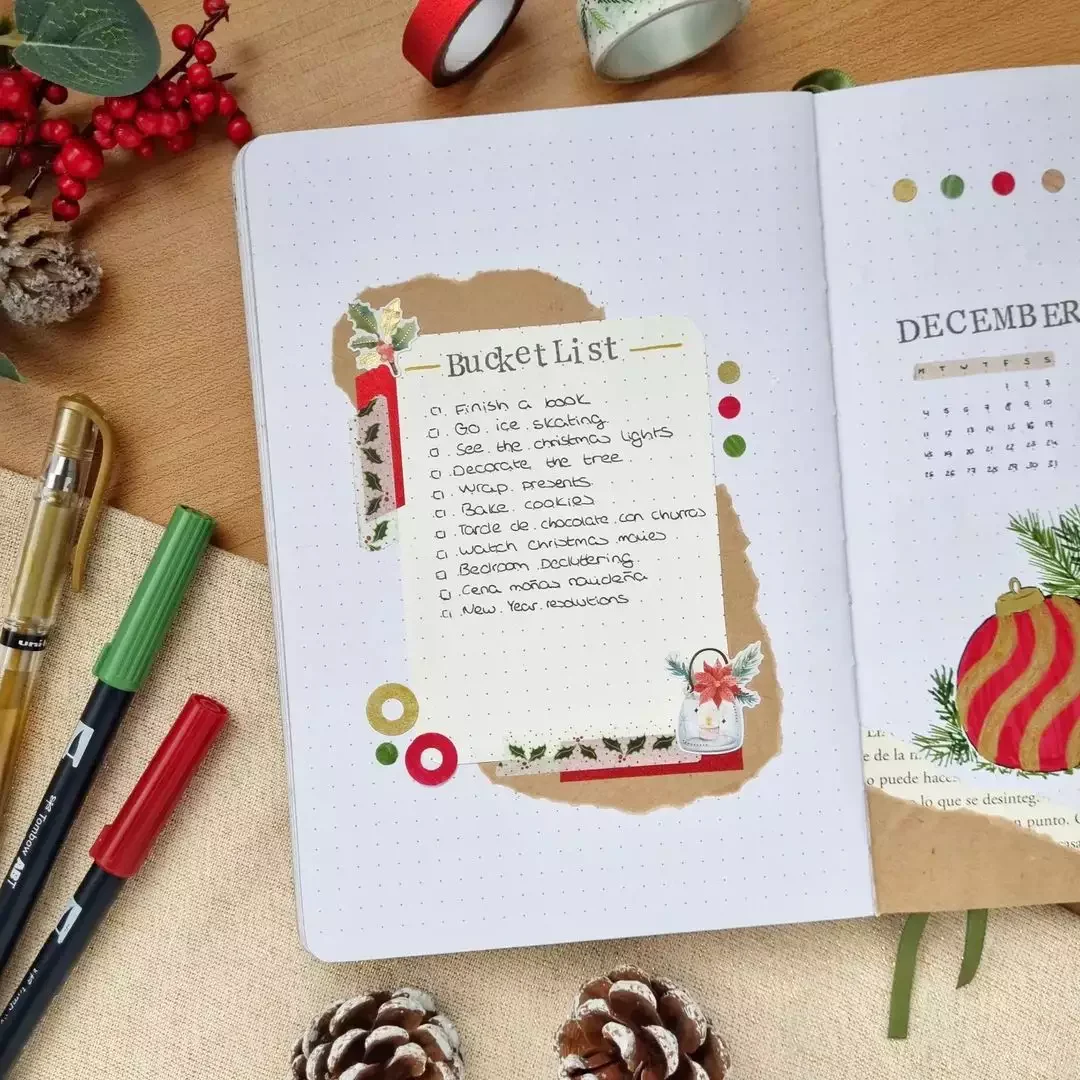 Bucket List
Finish a book
Go ice skating
See the christmas lights
Decorate the tree
Wrap presents
Bake cookies
Tarde de chocolate con churros
Watch christmas movies
Bedroom Decluttering
Cena moñas navideña
New Year resolutions
DECEMBER
M T W T F S S
1 2 3
4 5 6 7 8 9 10
11 12 13 14 15 16 17
18 19 20 21 22 23 24
25 26 27 28 29 30 31
e de la
o puede hace
lo que se desinteg
punto.
uni
Tombow ART